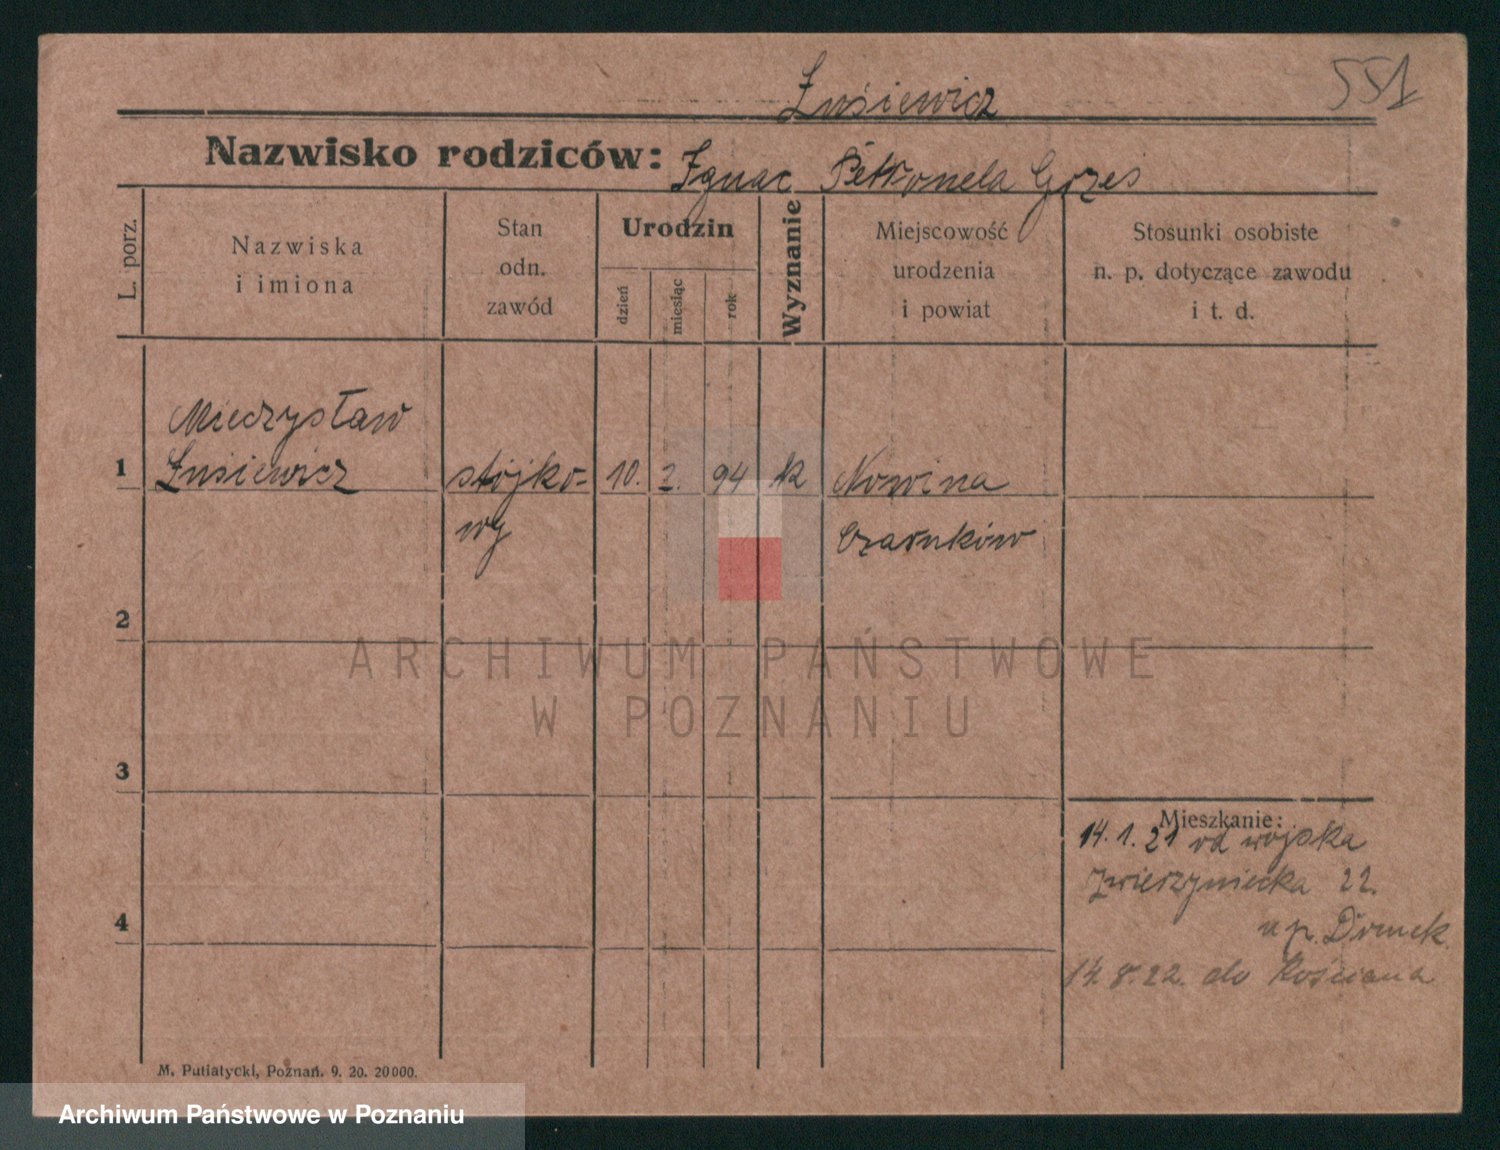 551
Żuśiewicz
Nazwisko rodziców: Ignac Petronela Grzes
L. porz.
Nazwiska
i imiona
Stan
odn.
zawód
Urodzin
dzień
miesiąc
rok
Wyznanie
Miejscowość
urodzenia
i powiat
Stosunki osobiste
n. p. dotyczące zawodu
i t. d.
Mieczysław
1 Żuśiewicz stójko- 10. 2. 94 k Nowina
wy Czarnków
2
ARCHIWUM PAŃSTWOWE
W POZNANIU
3
Mieszkanie:
14.1.21 od wojska
Zwierzyniecka 22.
4
u p.
14.8.22. do Kościana
M. Putiatycki, Poznań. 9. 20. 20000.
Archiwum Państwowe w Poznaniu